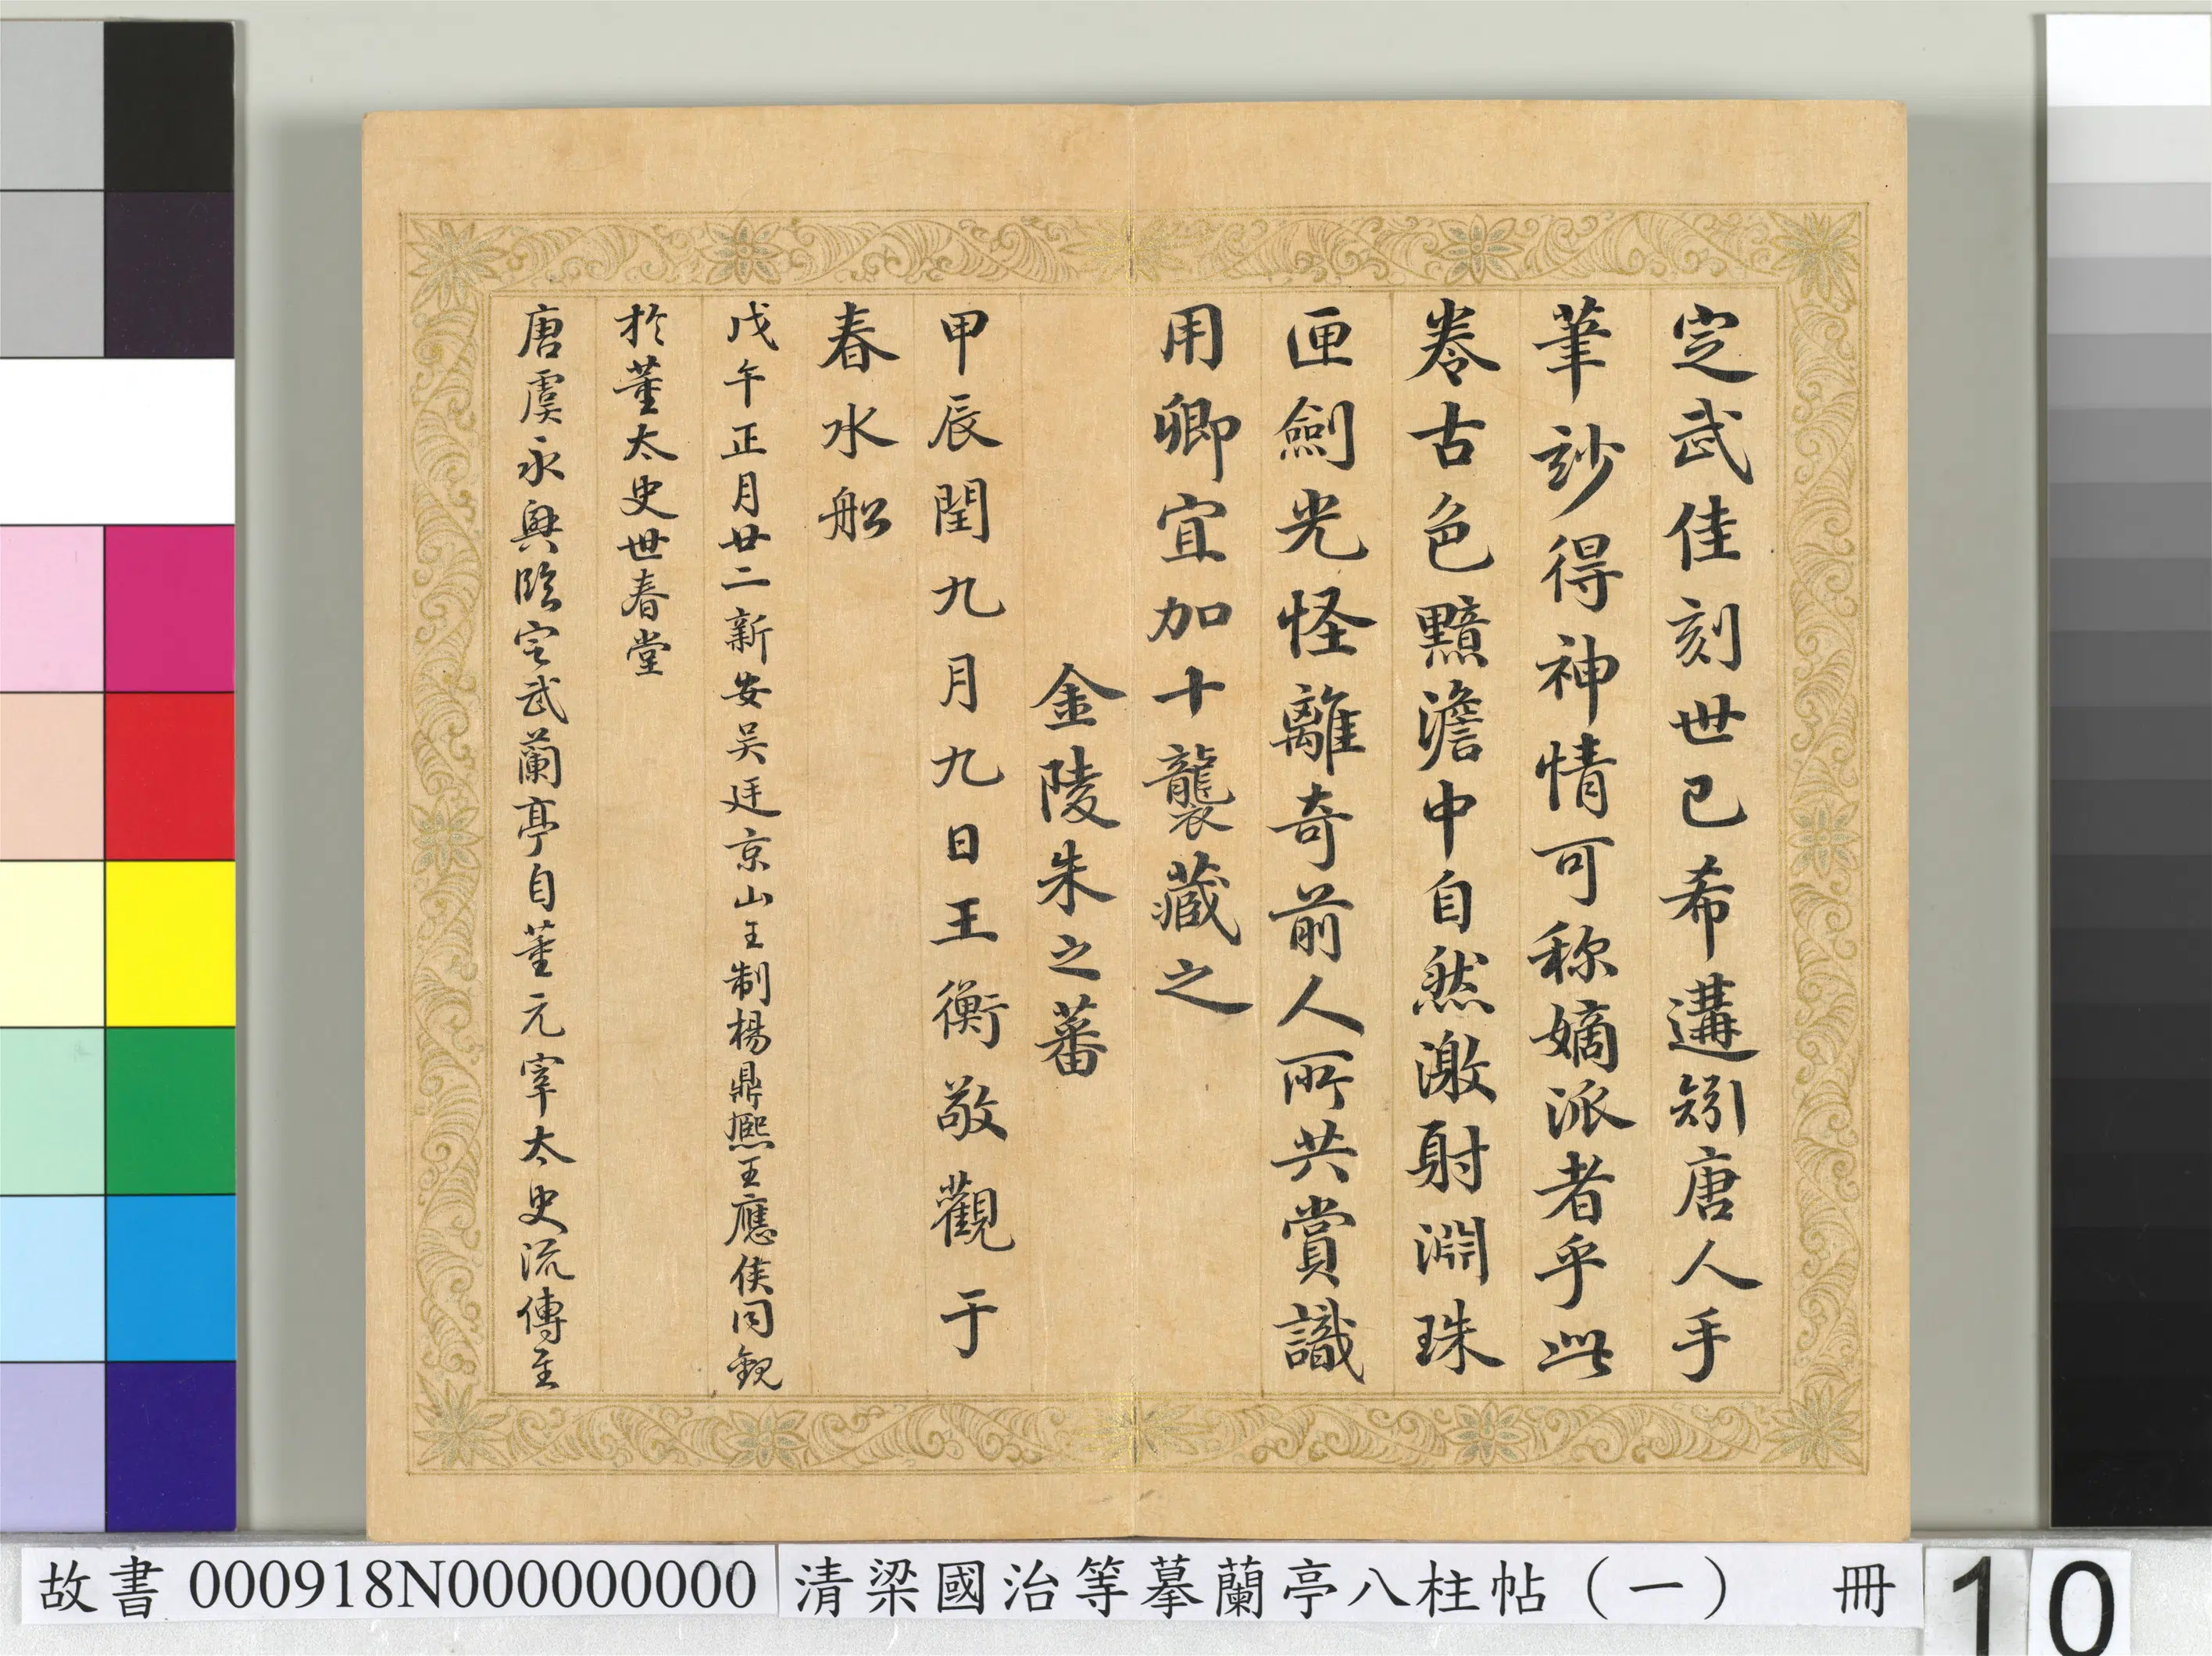 定武佳刻世已希遘矧唐人手
筆玅得神情可称嫡派者乎此
卷古色黯澹中自然激射淵珠
匣劍光怪離奇前人所共賞識
用卿宜加十襲藏之
金陵朱之蕃
甲辰閏九月九日王衡敬觀于
春水船
戊午正月廿二新安吴廷京山王制楊鼎熙王應侯同觀
於董太史世春堂
唐虞永興臨定武蘭亭自董元宰太史流傳至
故書 000918N000000000 清梁國治等摹蘭亭八柱帖（一） 冊 10